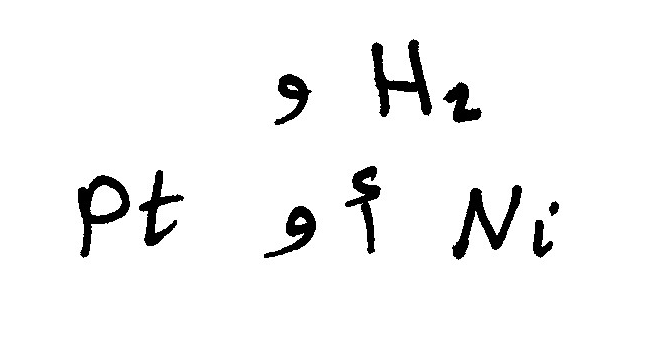 H2 و
Ni أو Pt